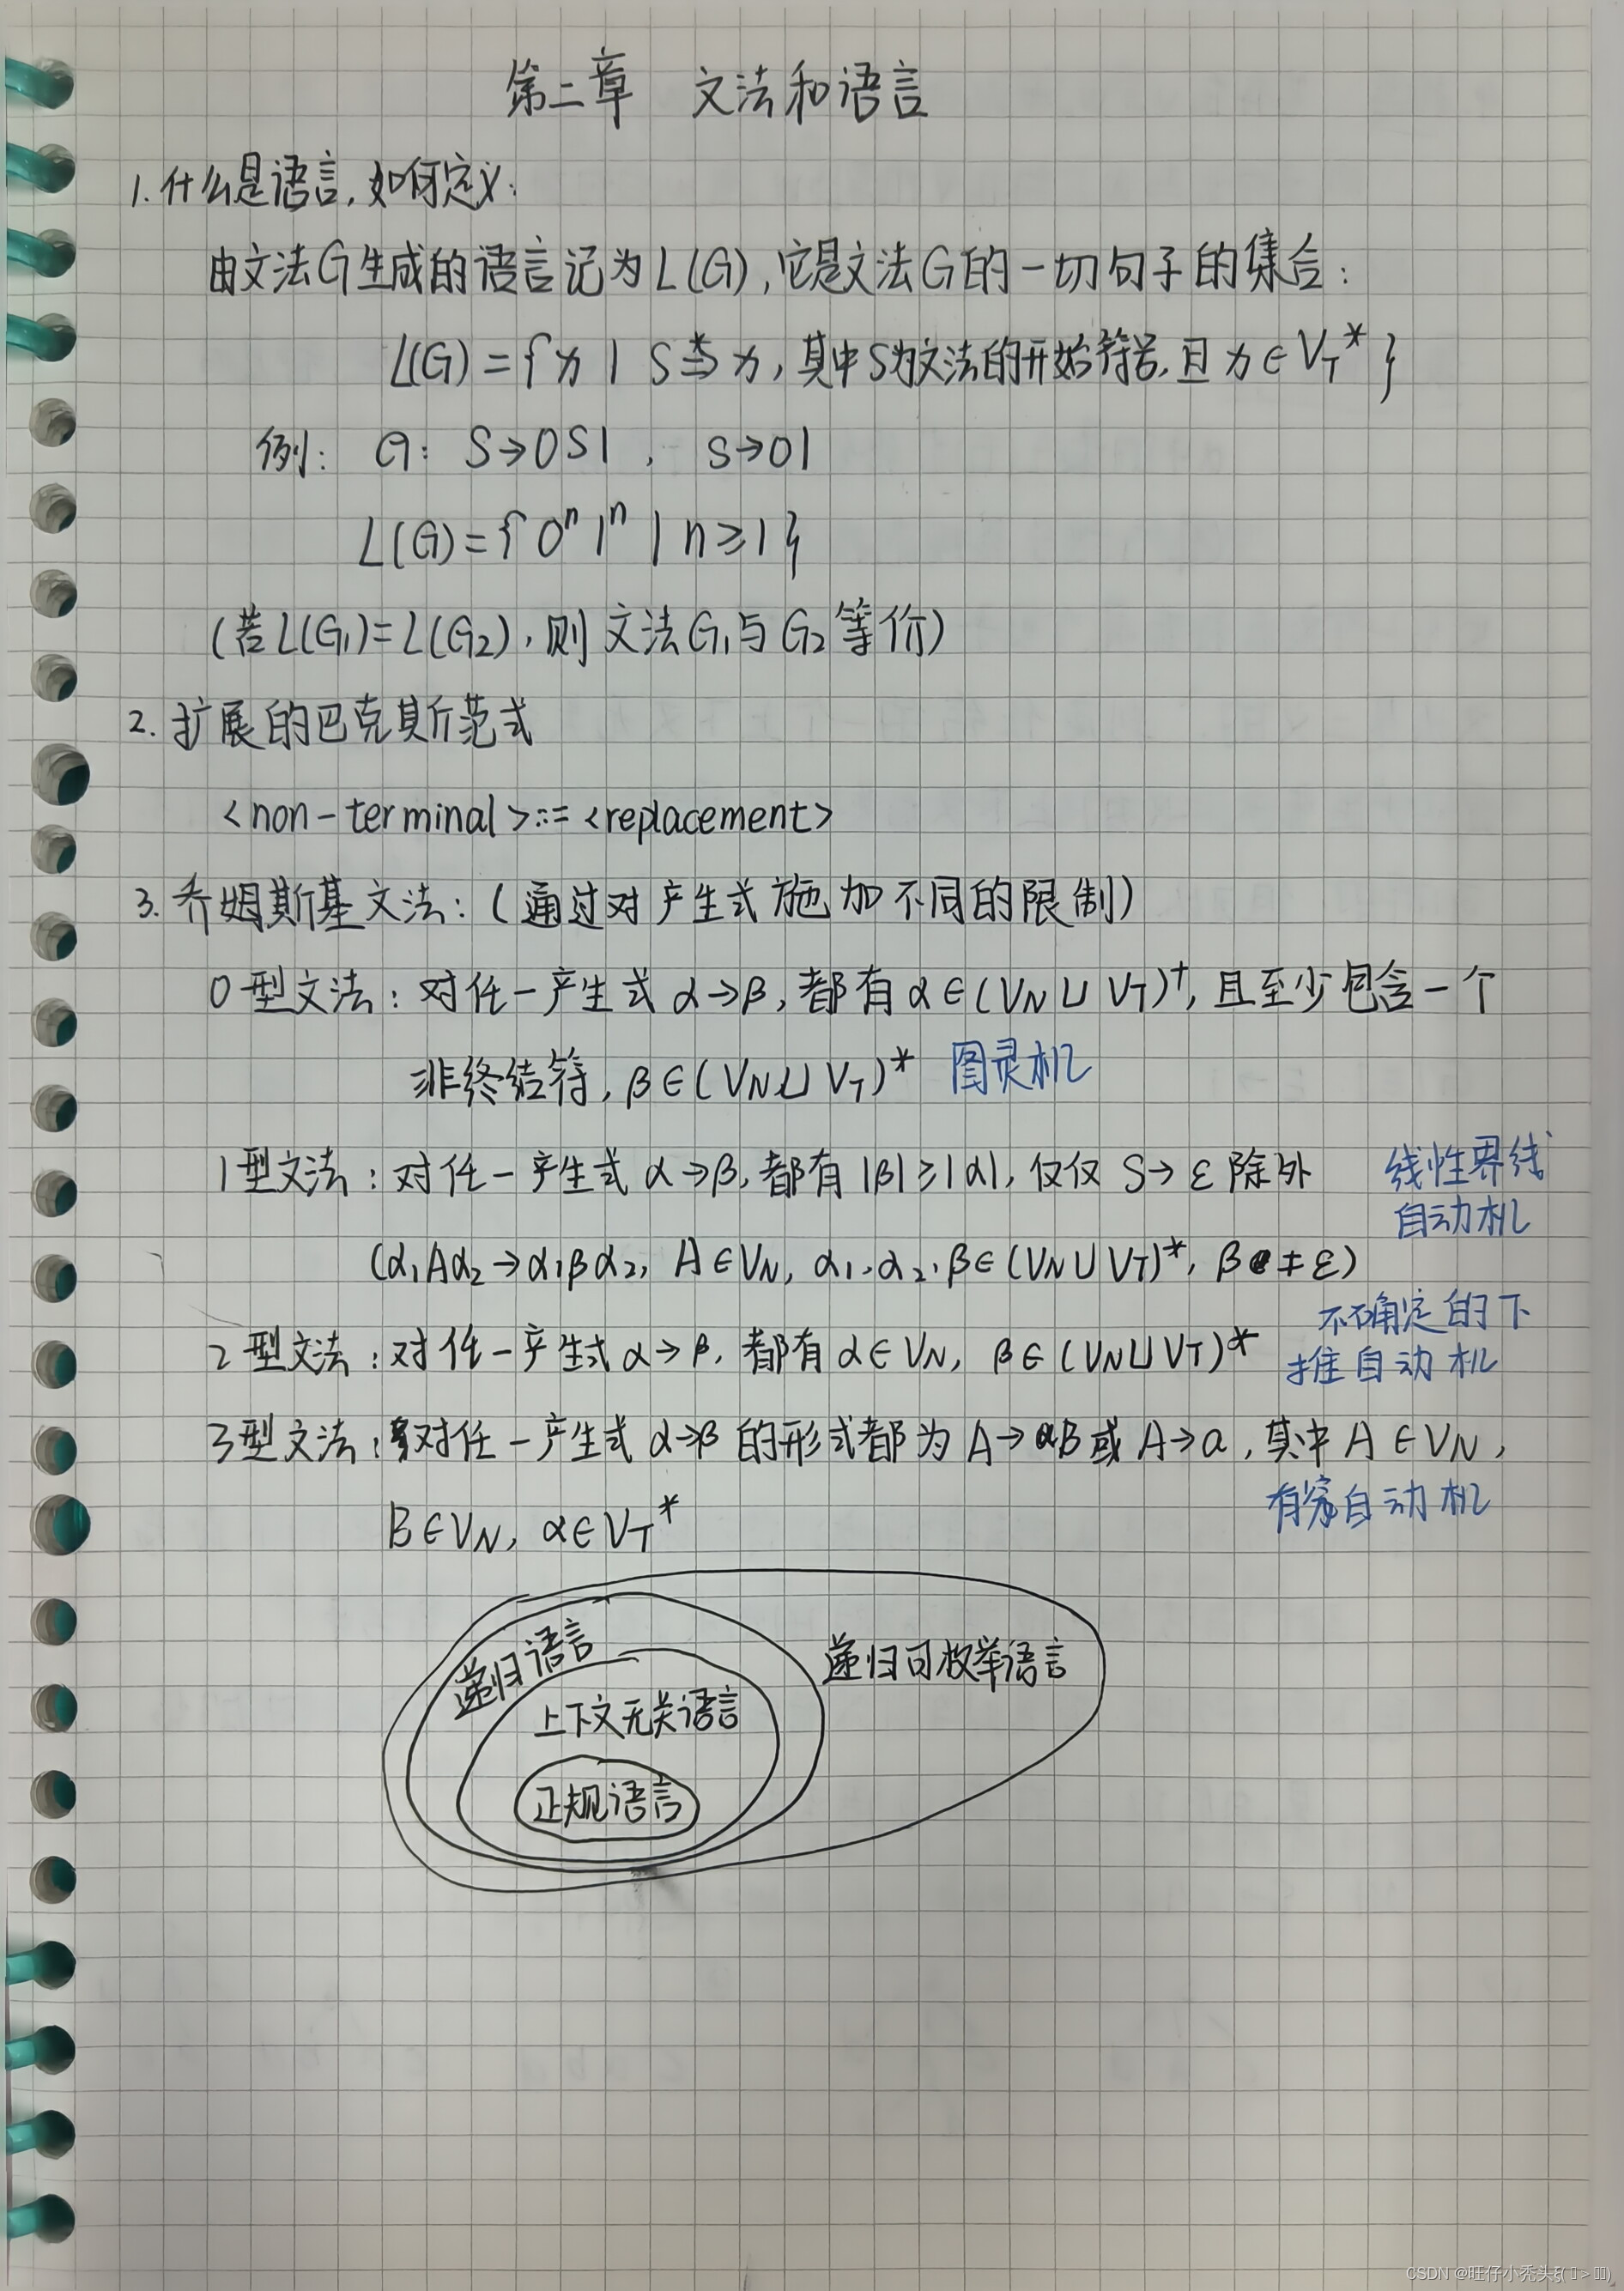 第二章 文法和语言
1. 什么是语言,如何定义:
由文法G生成的语言记为L(G),它是文法G的一切句子的集合:
L(G)={x | S⇒*x,其中S为文法的开始符号,且x∈V_T*}
例: G: S→0S1, S→01
L(G)={0ⁿ1ⁿ | n≥1}
(若L(G₁)=L(G₂),则文法G₁与G₂等价)
2. 扩展的巴克斯范式
<non-terminal>::=<replacement>
3. 乔姆斯基文法:(通过对产生式施加不同的限制)
0型文法:对任一产生式α→β,都有α∈(V_N∪V_T)⁺,且至少包含一个
非终结符,β∈(V_N∪V_T)* 图灵机
1型文法:对任一产生式α→β,都有|β|≥|α|,仅仅S→ε除外 线性界线
自动机
(α₁Aα₂→α₁βα₂, A∈V_N, α₁,α₂,β∈(V_N∪V_T)*, β≠ε)
不确定的下
2型文法:对任一产生式α→β,都有α∈V_N, β∈(V_N∪V_T)* 推自动机
3型文法:对任一产生式α→β的形式都为A→αB或A→α,其中A∈V_N,
有穷自动机
B∈V_N, α∈V_T*
递归语言
递归可枚举语言
上下文无关语言
正规语言
CSDN @旺仔小秃头